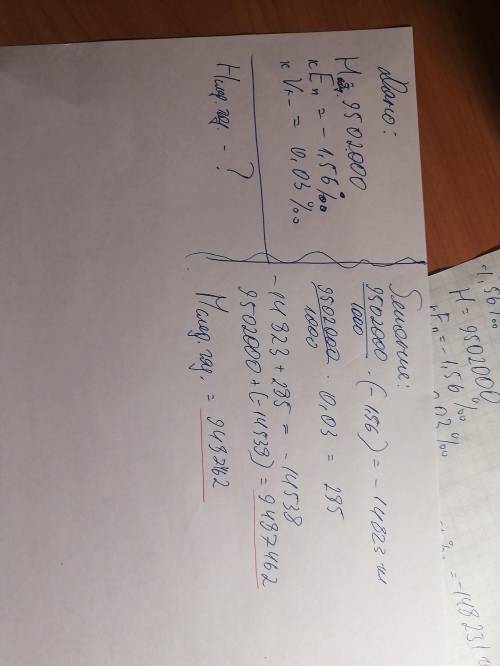 Дано:
Н год. 9502000
кЕп = -1,56‰
кV+- = 0,03‰
Н след. год. - ?
Решение:
9502000/1000 · (-1,56) = -14823 чел
9502000/1000 · 0,03 = 285
-14823 + 285 = -14538
9502000 + (-14538) = 9487462
Н след. год. = 948762
-1,56‰
Н = 9502000
кЕп = -1,56‰
0,02‰
= -14823